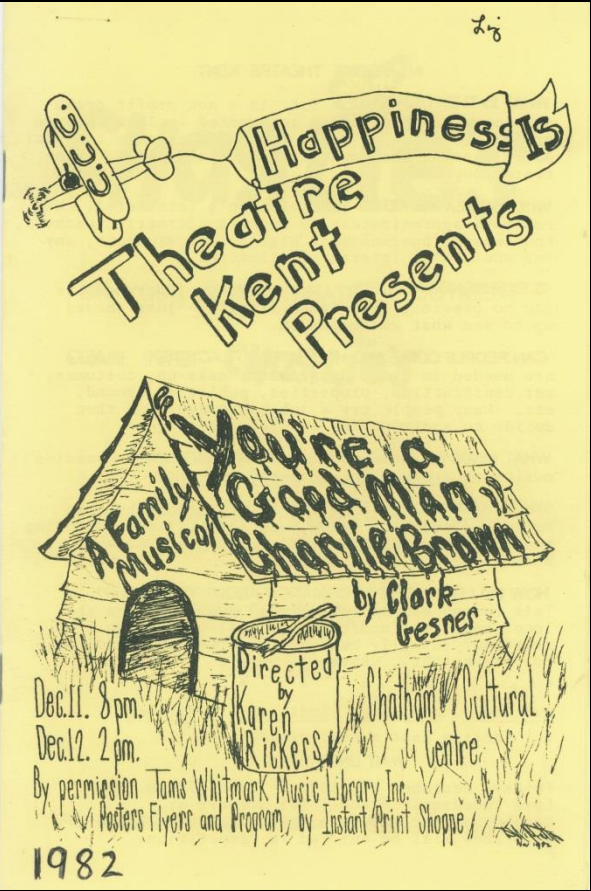 Liz
Happiness Is
Theatre
Kent
Presents
"You're a
Good Man
Charlie Brown"
A Family
Musical
by Clark
Gesner
Directed
by
Karen
Rickers
Dec.11. 8pm.
Dec.12. 2pm.
Chatham Cultural
Centre
By permission Tams Whitmark Music Library Inc.
Posters Flyers and Program, by Instant Print Shoppe
Nov 1982
1982